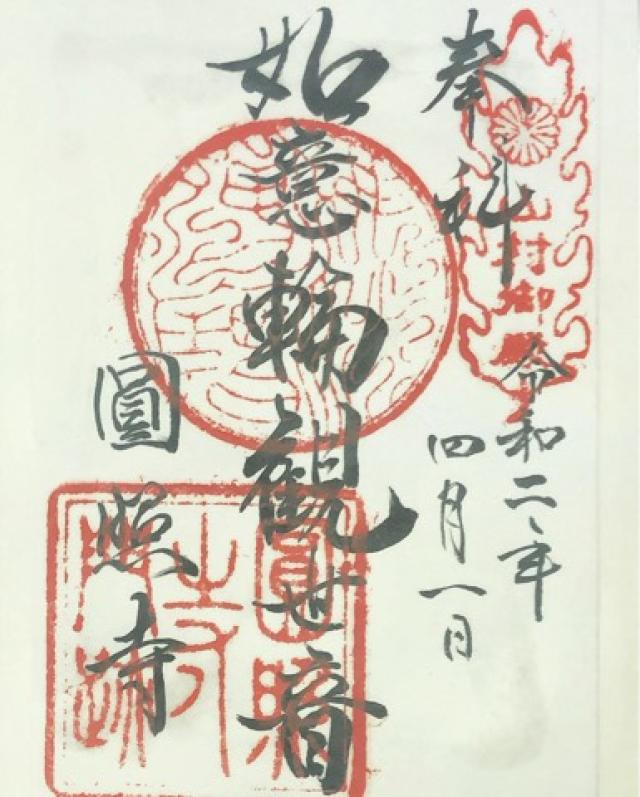 奉拝
山村御殿
令和二年
四月一日
如意輪観世音
圓照寺